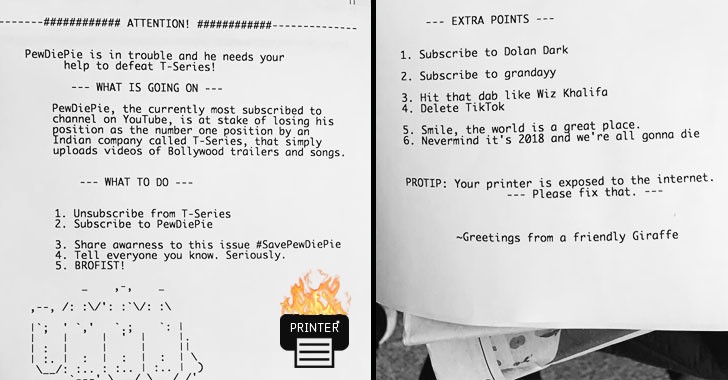 ------############ ATTENTION! ############--------------
PewDiePie is in trouble and he needs your
help to defeat T-Series!
--- WHAT IS GOING ON ---
PewDiePie, the currently most subscribed to
channel on YouTube, is at stake of losing his
position as the number one position by an
Indian company called T-Series, that simply
uploads videos of Bollywood trailers and songs.
--- WHAT TO DO ---
1. Unsubscribe from T-Series
2. Subscribe to PewDiePie
3. Share awarness to this issue #SavePewDiePie
4. Tell everyone you know. Seriously.
5. BROFIST!
PRINTER
--- EXTRA POINTS ---
1. Subscribe to Dolan Dark
2. Subscribe to grandayy
3. Hit that dab like Wiz Khalifa
4. Delete TikTok
5. Smile, the world is a great place.
6. Nevermind it's 2018 and we're all gonna die
PROTIP: Your printer is exposed to the internet.
--- Please fix that. ---
~Greetings from a friendly Giraffe